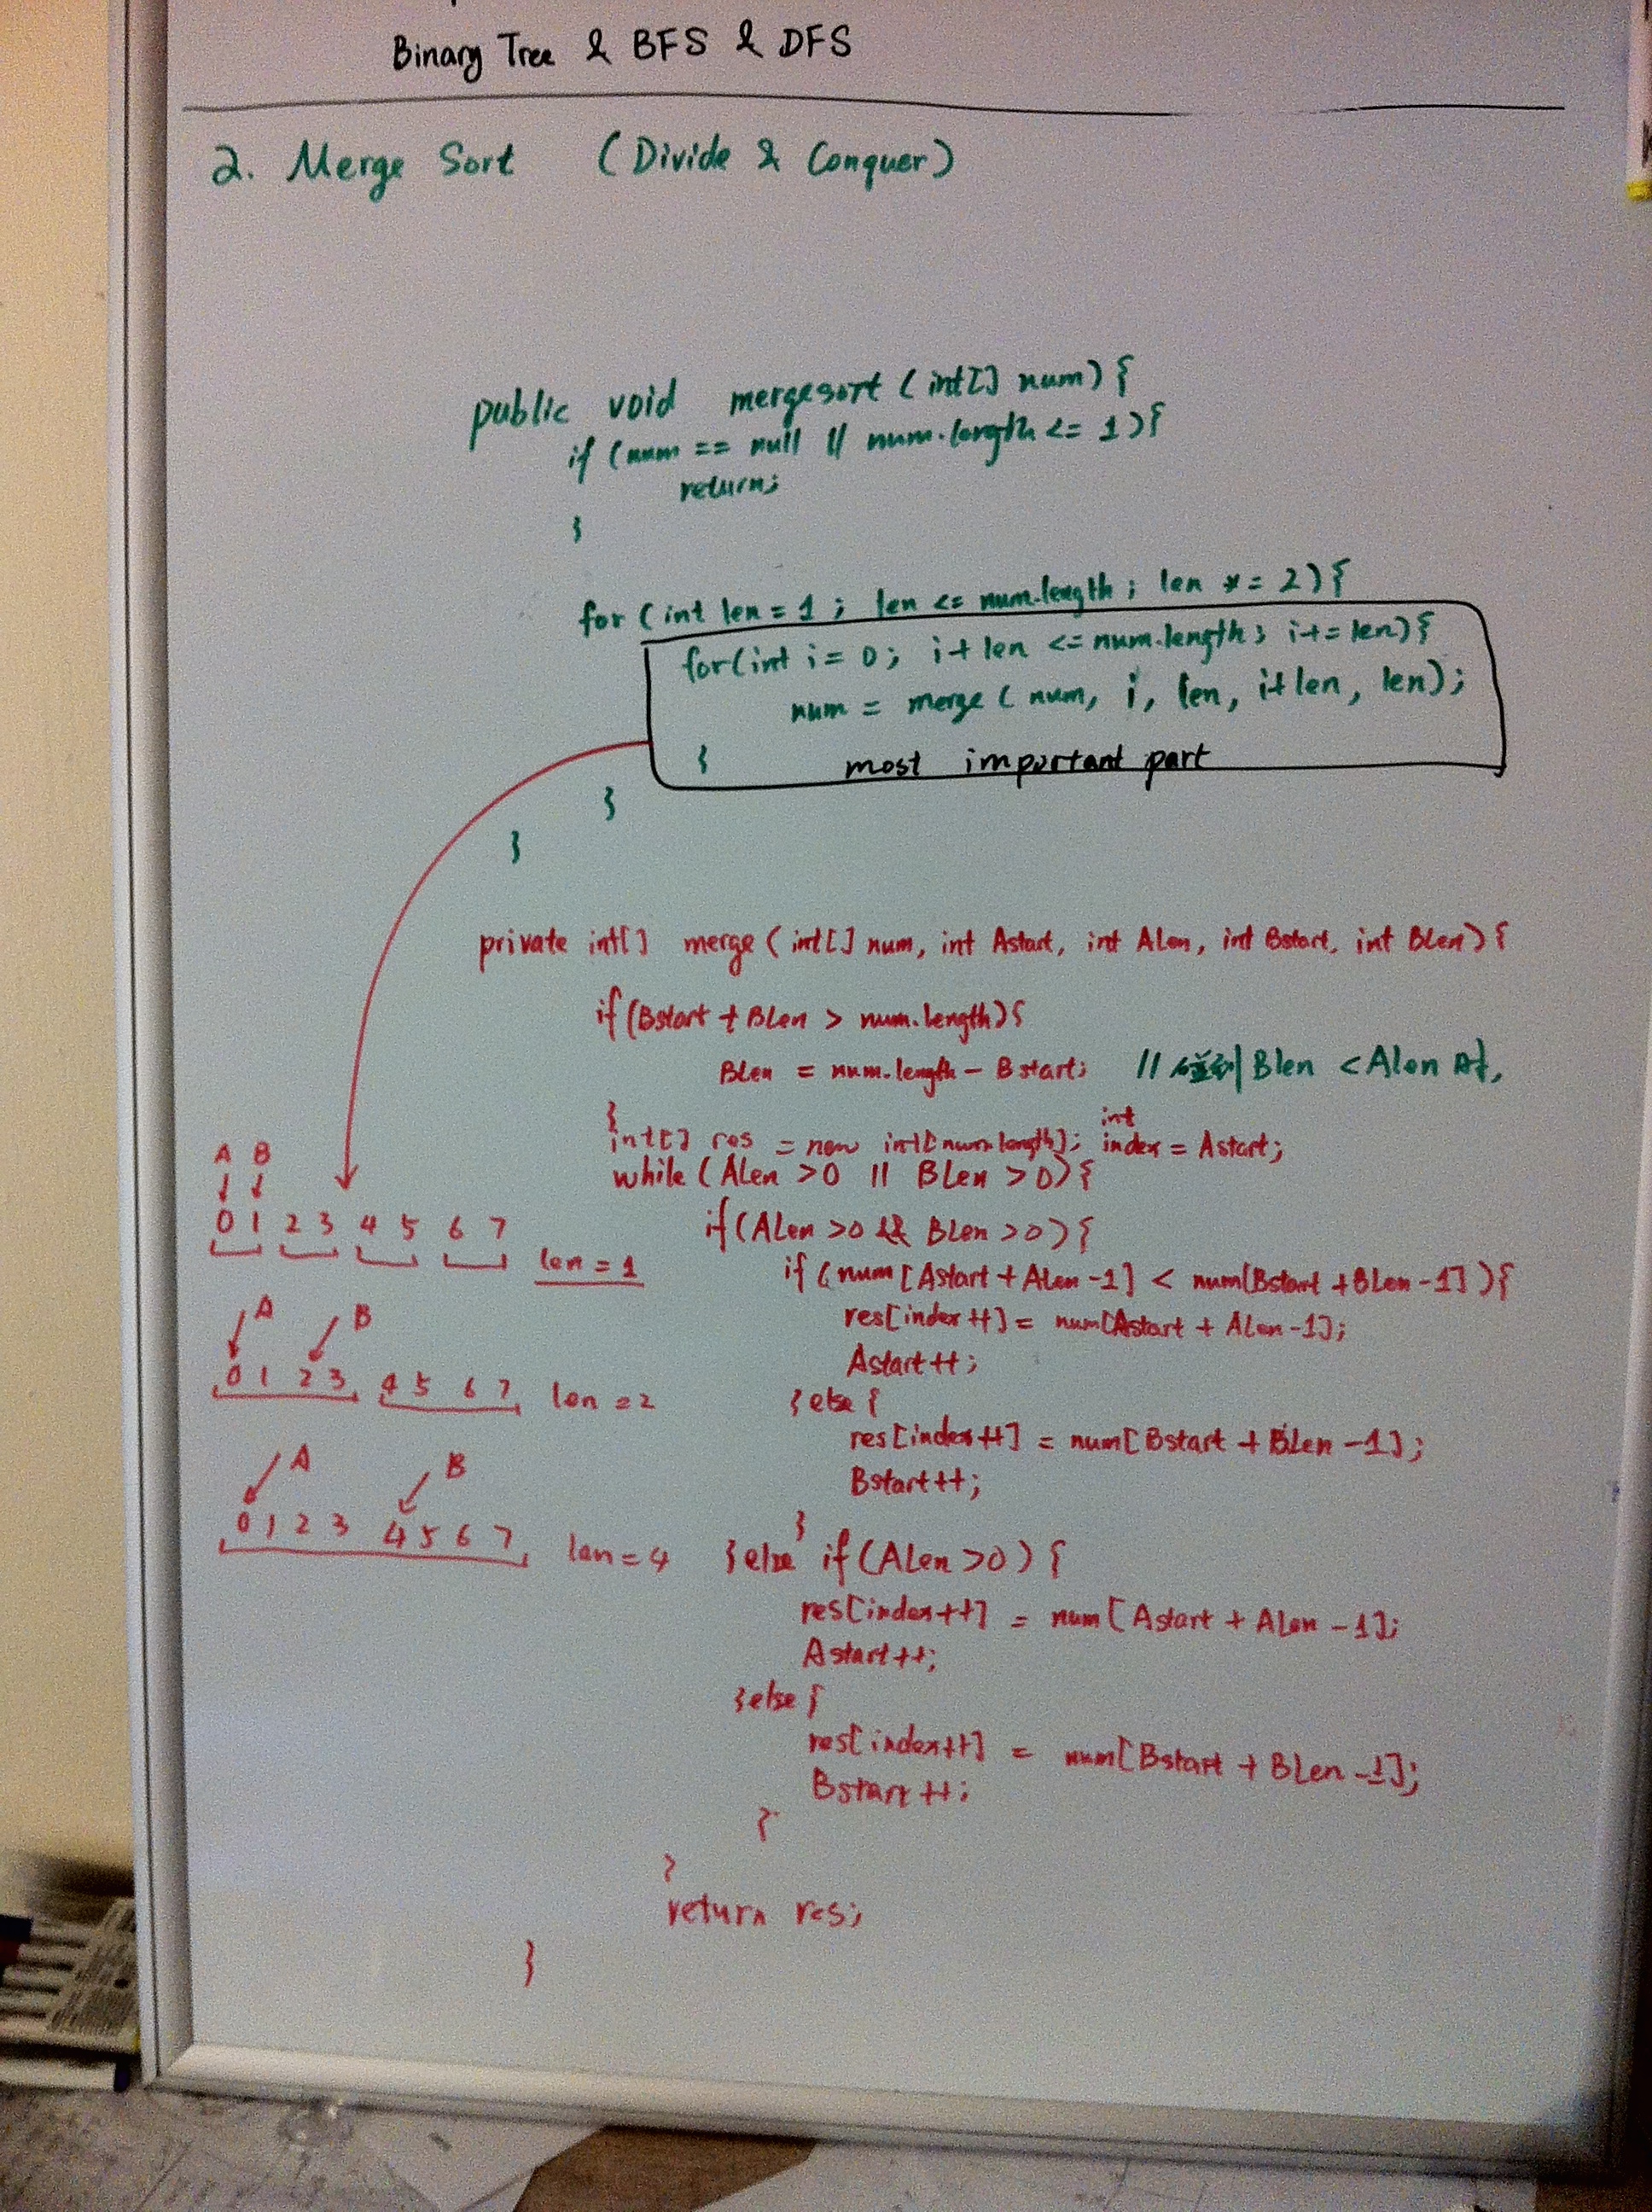 Binary Tree & BFS & DFS
2. Merge Sort (Divide & Conquer)
public void mergesort (int[] num) {
if (num == null || num.length <= 1) {
return;
}
for (int len = 1 ; len <= num.length ; len *= 2) {
for(int i = 0 ; i + len <= num.length ; i += len) {
num = merge ( num, i, len, i+len, len);
} most important part
}
}
private int[] merge ( int[] num, int Astart, int ALen, int Bstart, int BLen) {
if (Bstart + BLen > num.length) {
BLen = num.length - Bstart; // 碰到 Blen < Alen 时,
}
int[] res = new int[num.length]; int index = Astart;
while (ALen >0 || BLen >0) {
if (ALen >0 && BLen >0) {
if (num [Astart + ALen -1] < num[Bstart +BLen -1] ) {
res[index ++] = num[Astart + ALen -1];
Astart ++ ;
} else {
res[index ++] = num[ Bstart + BLen -1 ] ;
Bstart ++;
}
} else if (ALen >0) {
res[index++] = num [ Astart + ALen -1];
Astart ++;
} else {
res[index++] = num[Bstart + BLen -1];
Bstart ++;
}
}
return res;
}
A B
0 1 2 3 4 5 6 7 len = 1
A B
0 1 2 3 4 5 6 7 len = 2
A B
0 1 2 3 4 5 6 7 len = 4